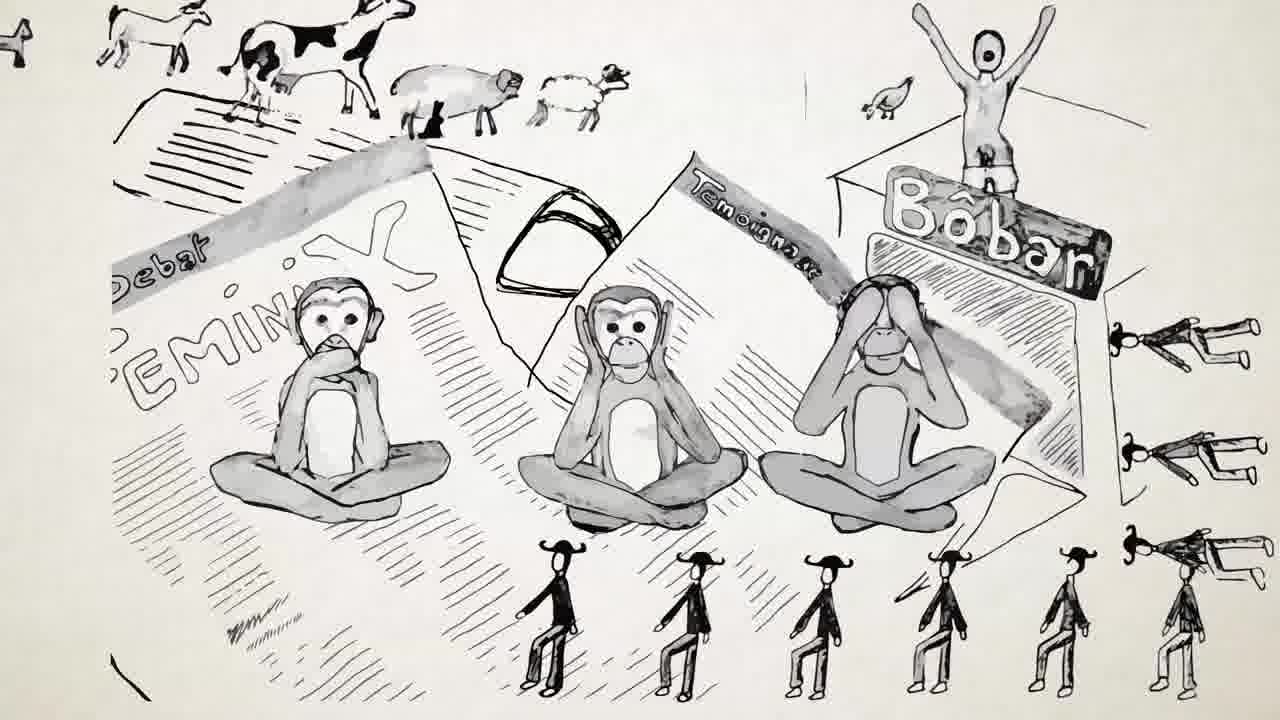 Debat
FEMINiX
Temoignage
Bôbar